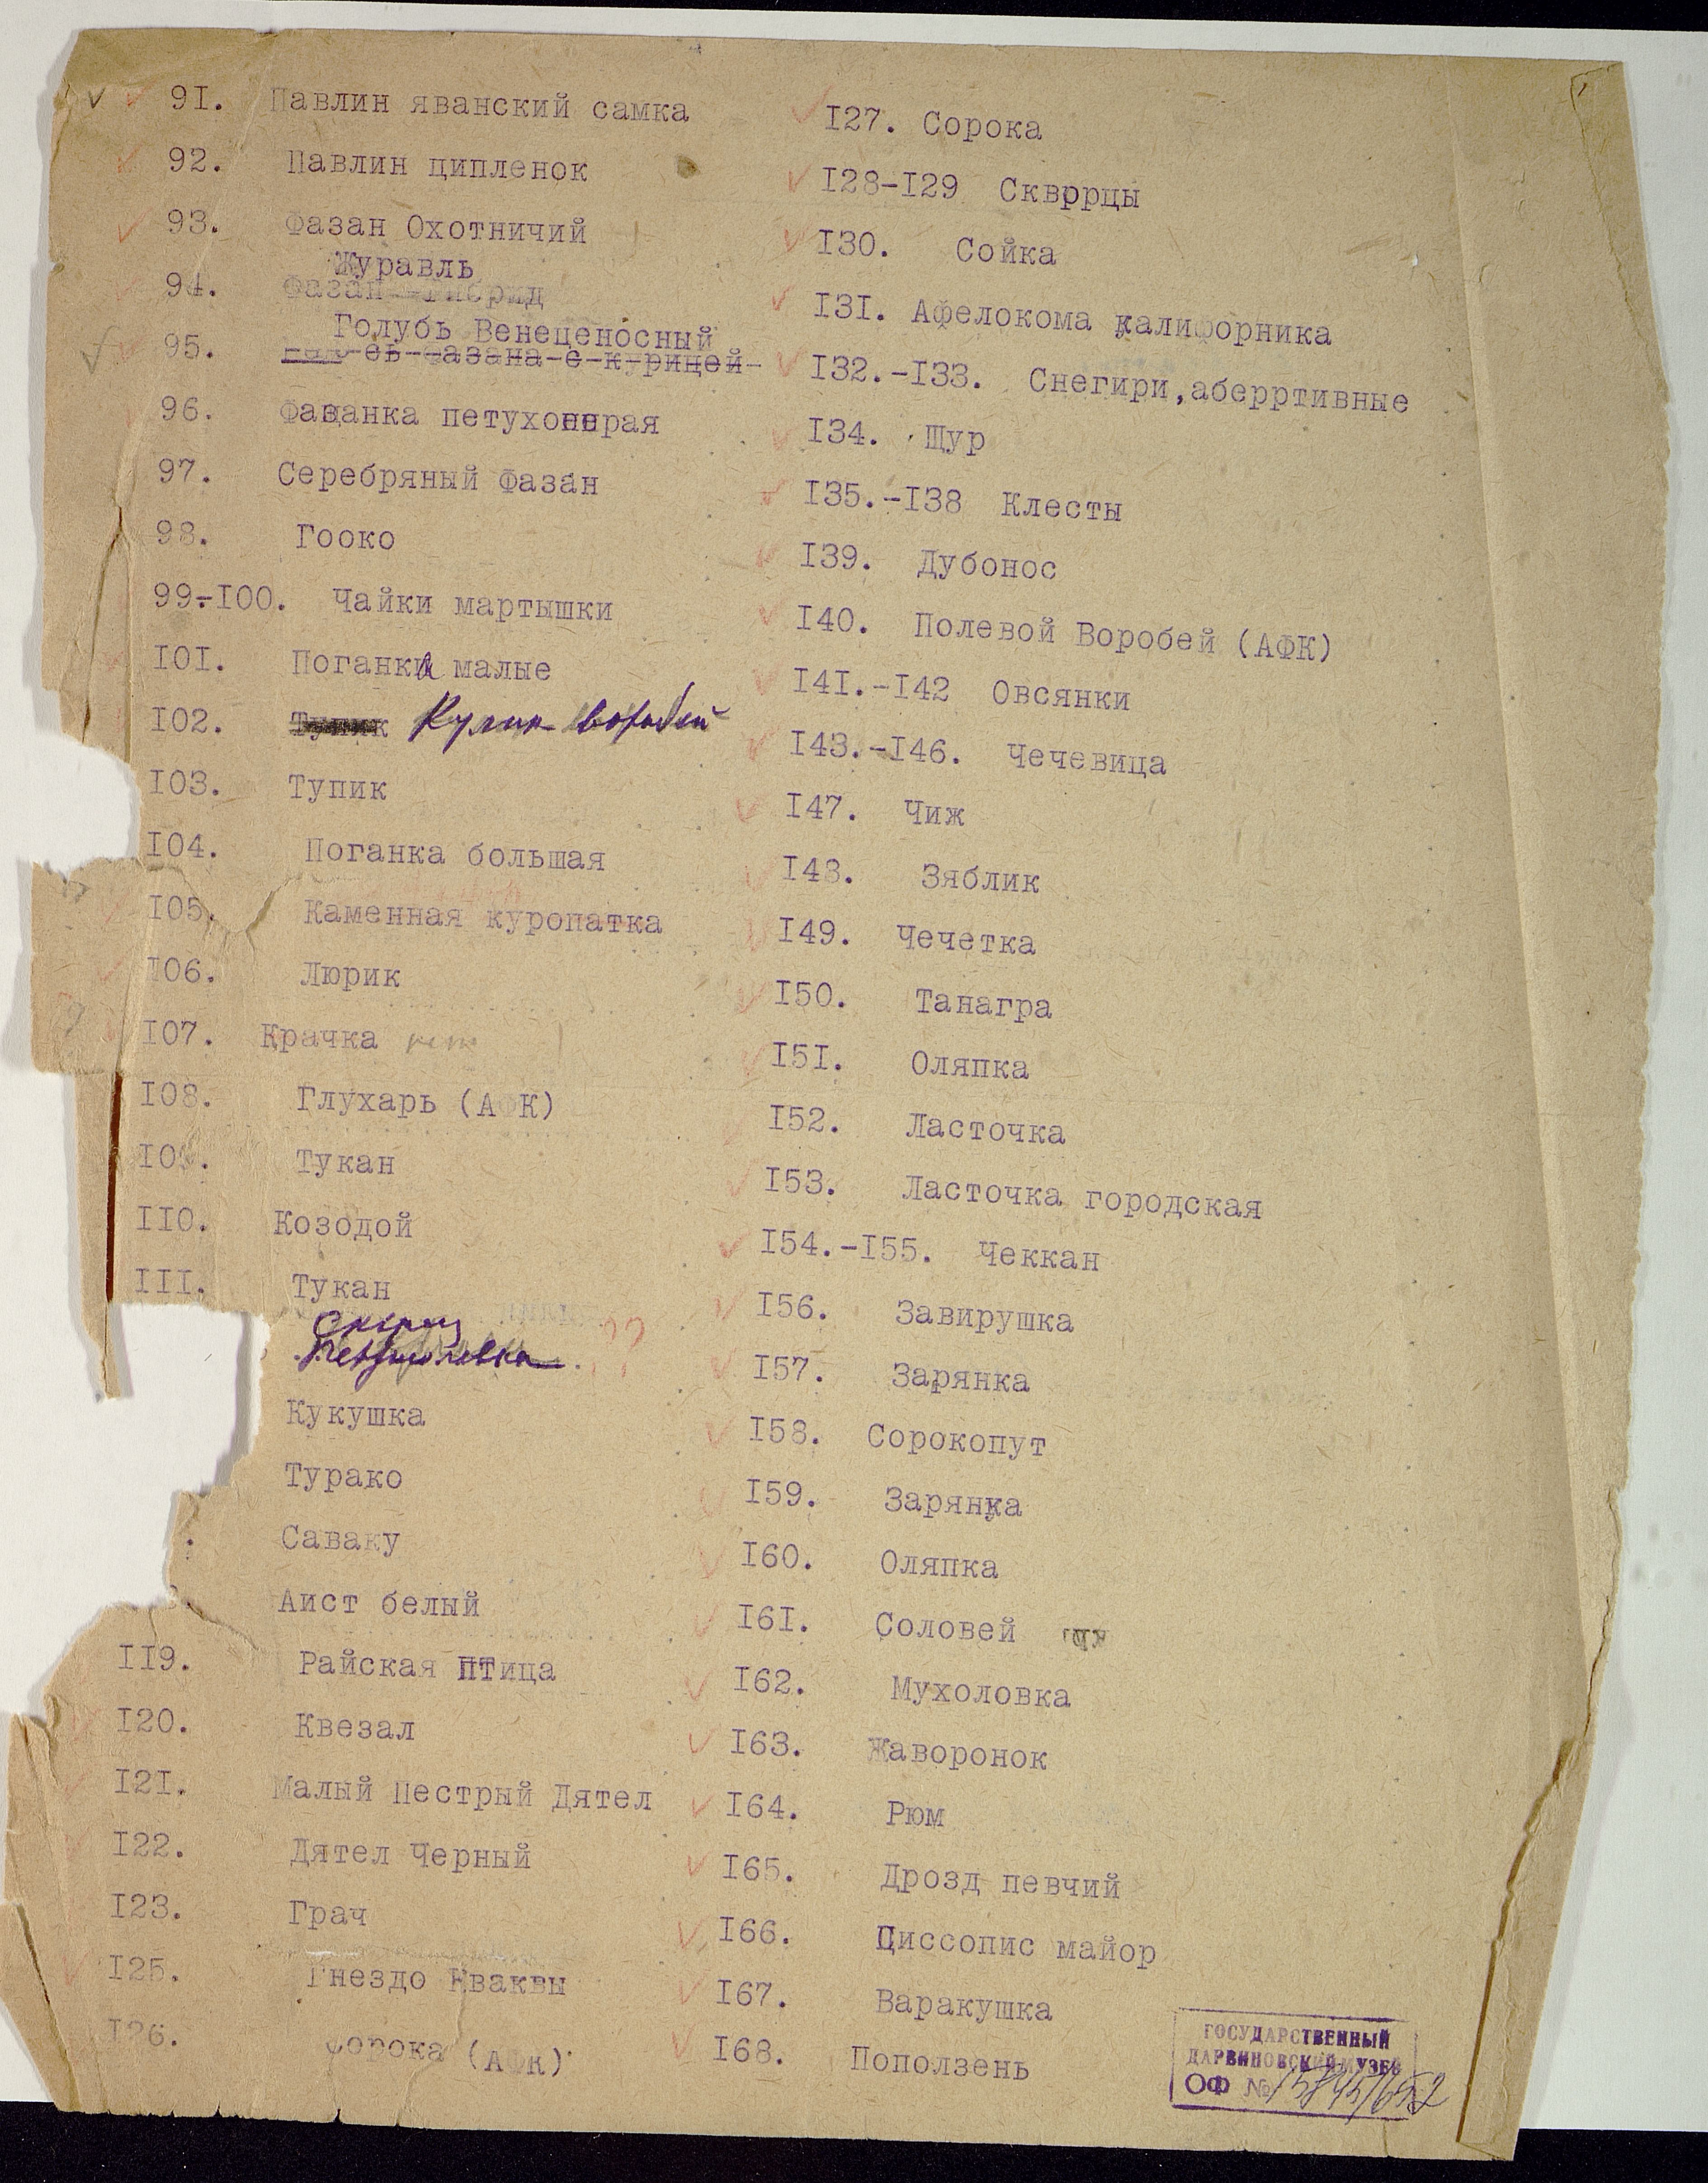 91. Павлин яванский самка
92. Павлин ципленок
93. Фазан Охотничий
Журавль
94. Фазан гибрид
Голубь Венеценосный
95. фазана-с-курицей-
96. Фазанка петухоперая
97. Серебряный Фазан
98. Гооко
99.-I00. Чайки мартышки
I0I. Поганка малые
I02. Тупик Кулик воробей
I03. Тупик
I04. Поганка большая
I05. Каменная куропатка
I06. Люрик
I07. Крачка нет
I08. Глухарь (А К)
I0 . Тукан
II0. Козодой
III. Тукан
??
Кукушка
Турако
Саваку
Аист белый
II9. Райская птица
I20. Квезал
I2I. Малый Пестрый Дятел
I22. Дятел Черный
I23. Грач
I25. Гнездо Кваквы
I26. Сорока (АФК)
I27. Сорока
I28-I29 Сквррцы
I30. Сойка
I3I. Афелокома калифорника
I32.-I33. Снегири,аберртивные
I34. Щур
I35.-I38 Клесты
I39. Дубонос
I40. Полевой Воробей (АФК)
I4I.-I42 Овсянки
I43.-I46. Чечевица
I47. Чиж
I48. Зяблик
I49. Чечетка
I50. Танагра
I5I. Оляпка
I52. Ласточка
I53. Ласточка городская
I54.-I55. Чеккан
I56. Завирушка
I57. Зарянка
I58. Сорокопут
I59. Зарянка
I60. Оляпка
I6I. Соловей
I62. Мухоловка
I63. Жаворонок
I64. Рюм
I65. Дрозд певчий
I66. Циссопис майор
I67. Варакушка
I68. Поползень
ГОСУДАРСТВЕННЫЙ
ДАРВИНОВСКИЙ МУЗЕЙ
ОФ №